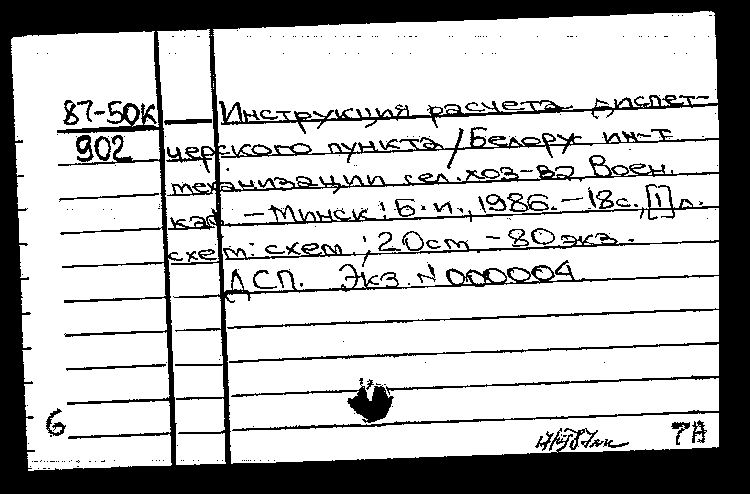 87-50К Инструкция расчета диспет-
902 черского пункта / Белору. ин-т
механизации сел. хоз-ва, Воен.
каф. - Минск: Б. и., 1986. - 18с., [1] л.
схем: схем.; 20см. - 80 экз.
ДСП. Экз. N 000004
6
7А